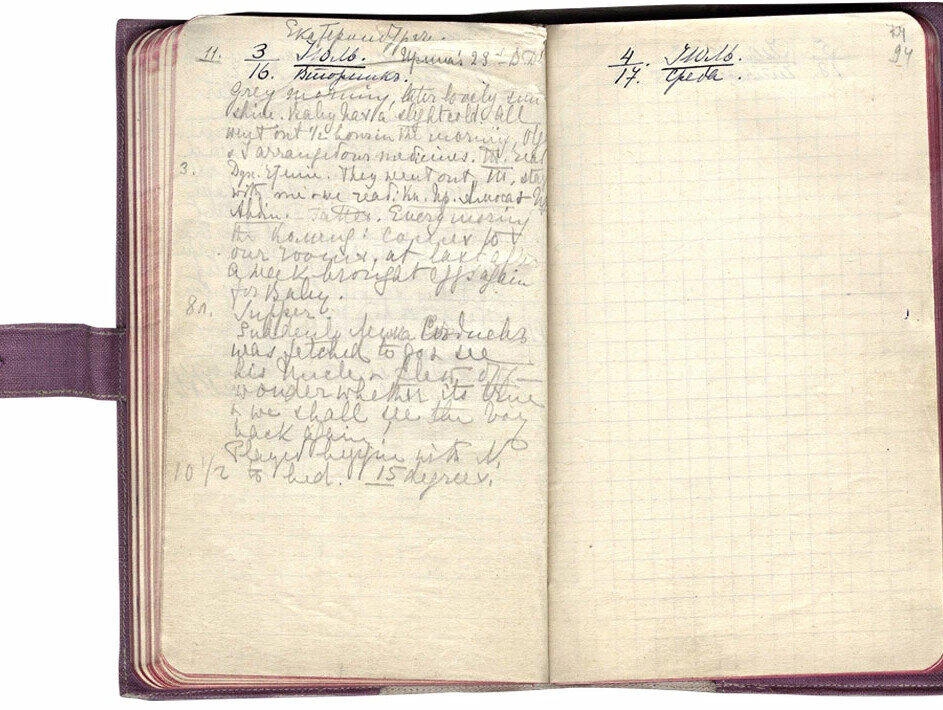 Екатеринбург.
11. 3 Июль. Ирина's 23rd B.D.
16. Вторникъ.
Grey morning, later lovely sun
shine. Baby has a slight cold. All
went out ½ hour in the morning, Olga
& I arranged our medicines. T. read
3. They went out, T. stayed
with me & we read: Amos &
Every morning
the Komend: comes to
our rooms, at last after
a week brought eggs again
for Baby.
8 Supper.
Suddenly
was fetched to go & see
his uncle & flew off -
wonder whether its true
& we shall see the boy
back again!
Played bezique with N.
10 ½ to bed. 15 degrees.
4 Июль.
17. Среда.
94